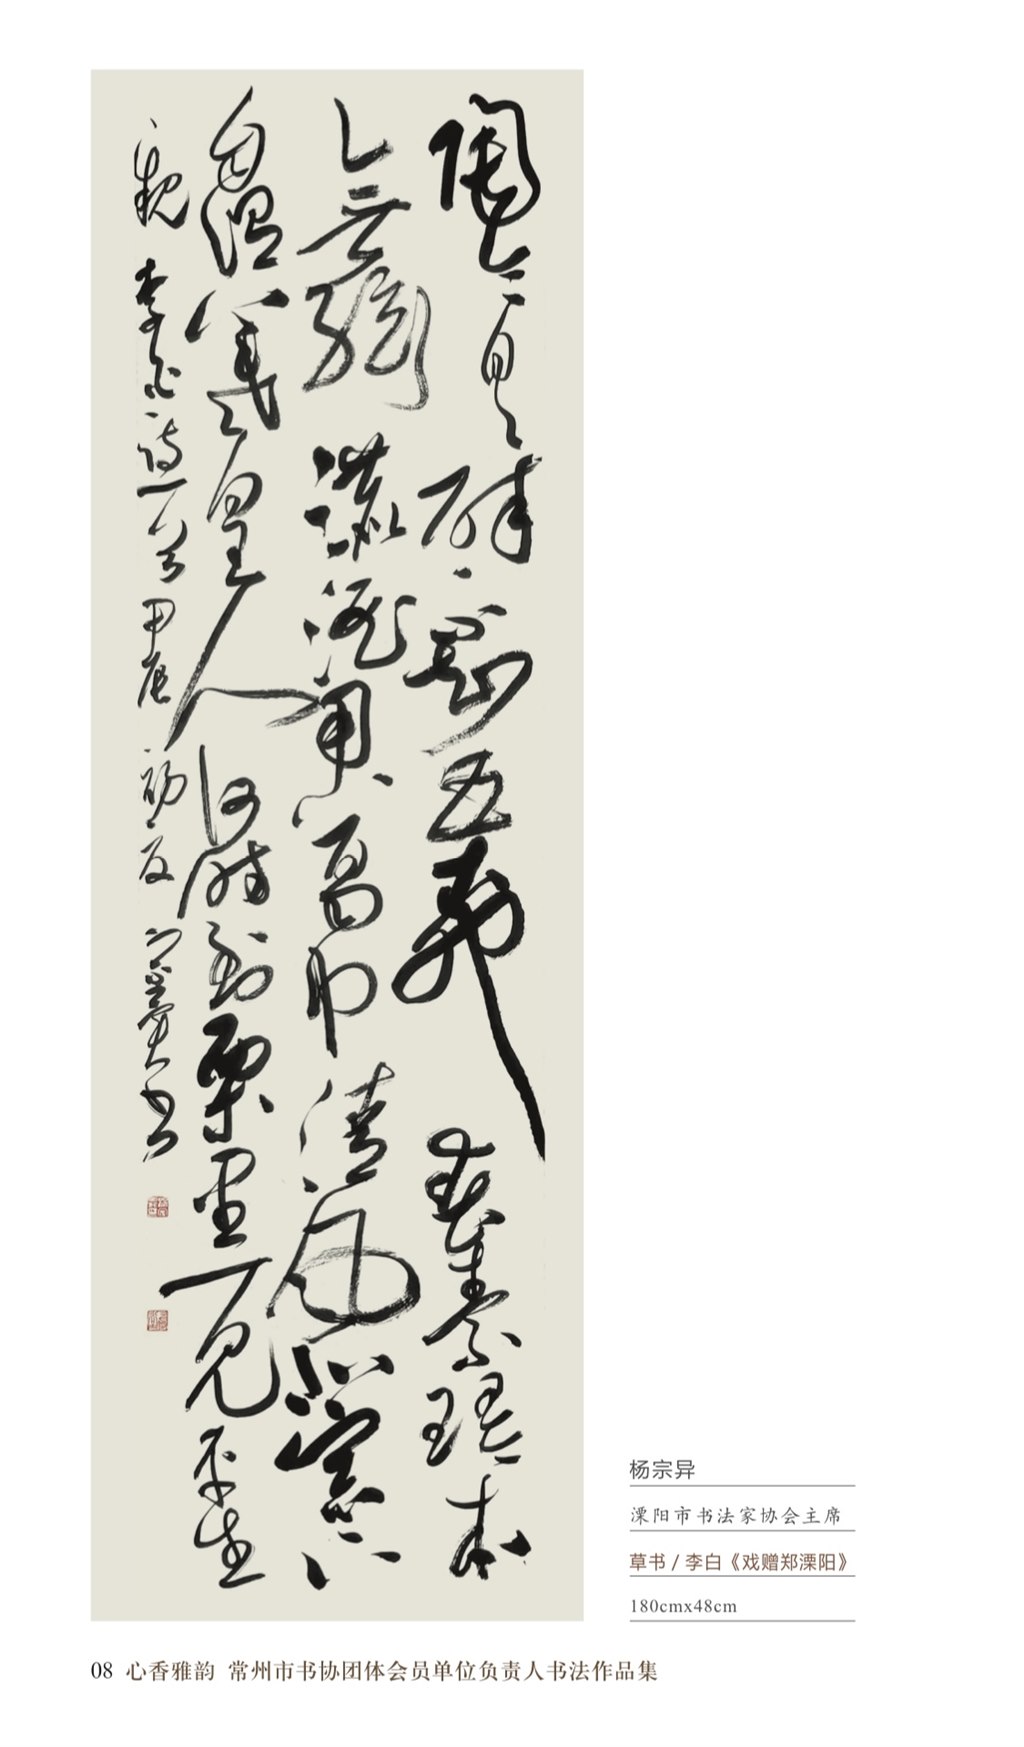 陶令日日醉不知五柳春素琴本
無絃漉酒用葛巾清風北窗下
自謂羲皇人何時到栗里一見平生
親 李白詩一首甲辰初夏宗異書
杨宗异
溧阳市书法家协会主席
草书 / 李白《戏赠郑溧阳》
180cmx48cm
08 心香雅韵 常州市书协团体会员单位负责人书法作品集